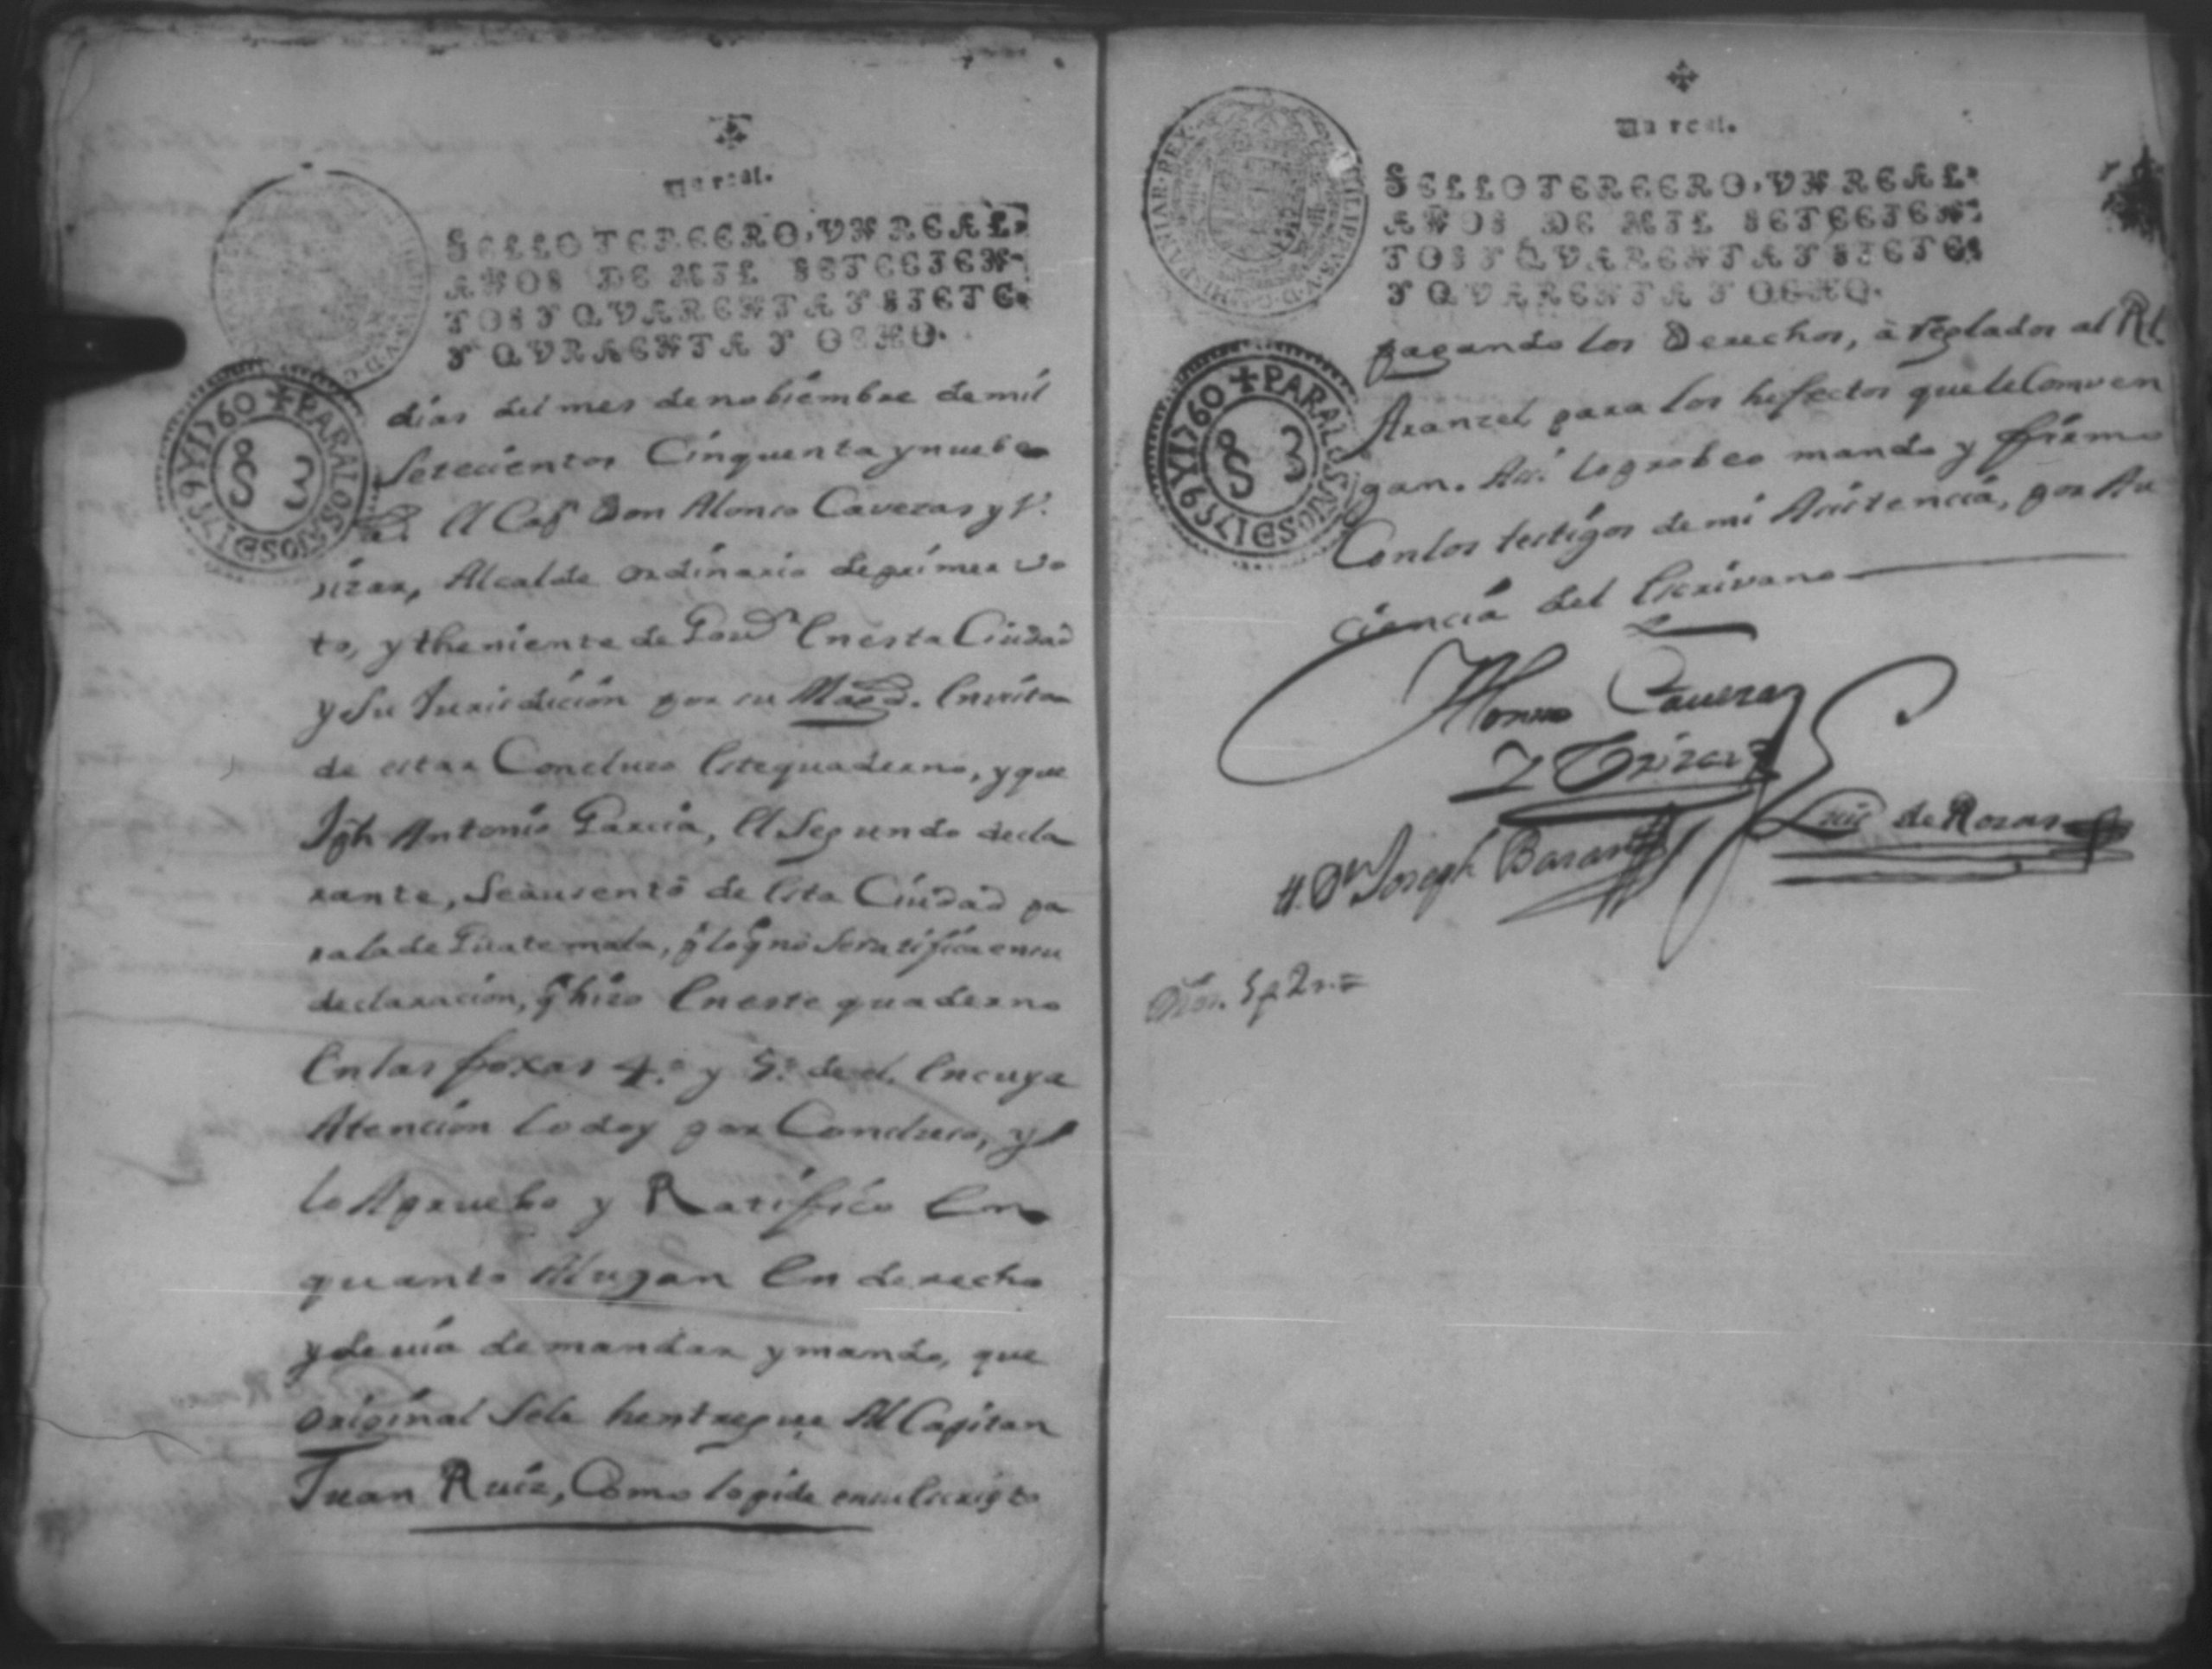 Un real.
SELLO TERCERO, VN REAL,
AÑOS DE MIL SETECIEN-
TOS Y QVARENTA Y SIETE,
Y QVRAENTA Y OCHO.
PARA LOS AÑOS D 1759 Y 1760
S 3
dias del mes de nobiembre de mil
Setecientos Cinquenta y nuebe
El Cap.n Don Alonso Cavezas y V.
rizar, Alcalde ordinario de primer vo
to, y theniente de Gov.or En esta Ciudad
y Su Jurisdicion por su Mag.d. En vista
de estar Concluso Este quaderno, y que
Jph Antonio Garcia, El Segundo decla
rante, Se ausentó de Esta Ciudad pa
ra la de Guatemala, p.r lo q.e no Se ratifica en su
declaracion, q.e hizo En este quaderno
En las foxas 4.a y 5.a de el. En cuya
Atencion lo doy por Concluso, y
lo Apruebo y Ratifico En
quanto Alugar En derecho
y devia de mandar y mando, que
original Sele hentregue Al Capitan
Juan Ruiz, Como lo pide en su Escripto
Un real.
SELLO TERCERO, VN REAL,
AÑOS DE MIL SETECIEN-
TOS Y QVARENTA Y SIETE,
Y QVARENTA Y OCHO.
PHILIPPVS V D G HISPANIAR REX
PARA LOS AÑOS D 1759 Y 1760
S 3
pagando los Derechos, à reglados al Rl.
Aranzel para los hefectos que le Comben
gan. Asi lo probeo mando y firmo
Con los testigos de mi Asistencia, por Au
ciencia del Escrivano
Alonso Cavezas
Y Vrizar
Luis de Rozas
Joseph Barant